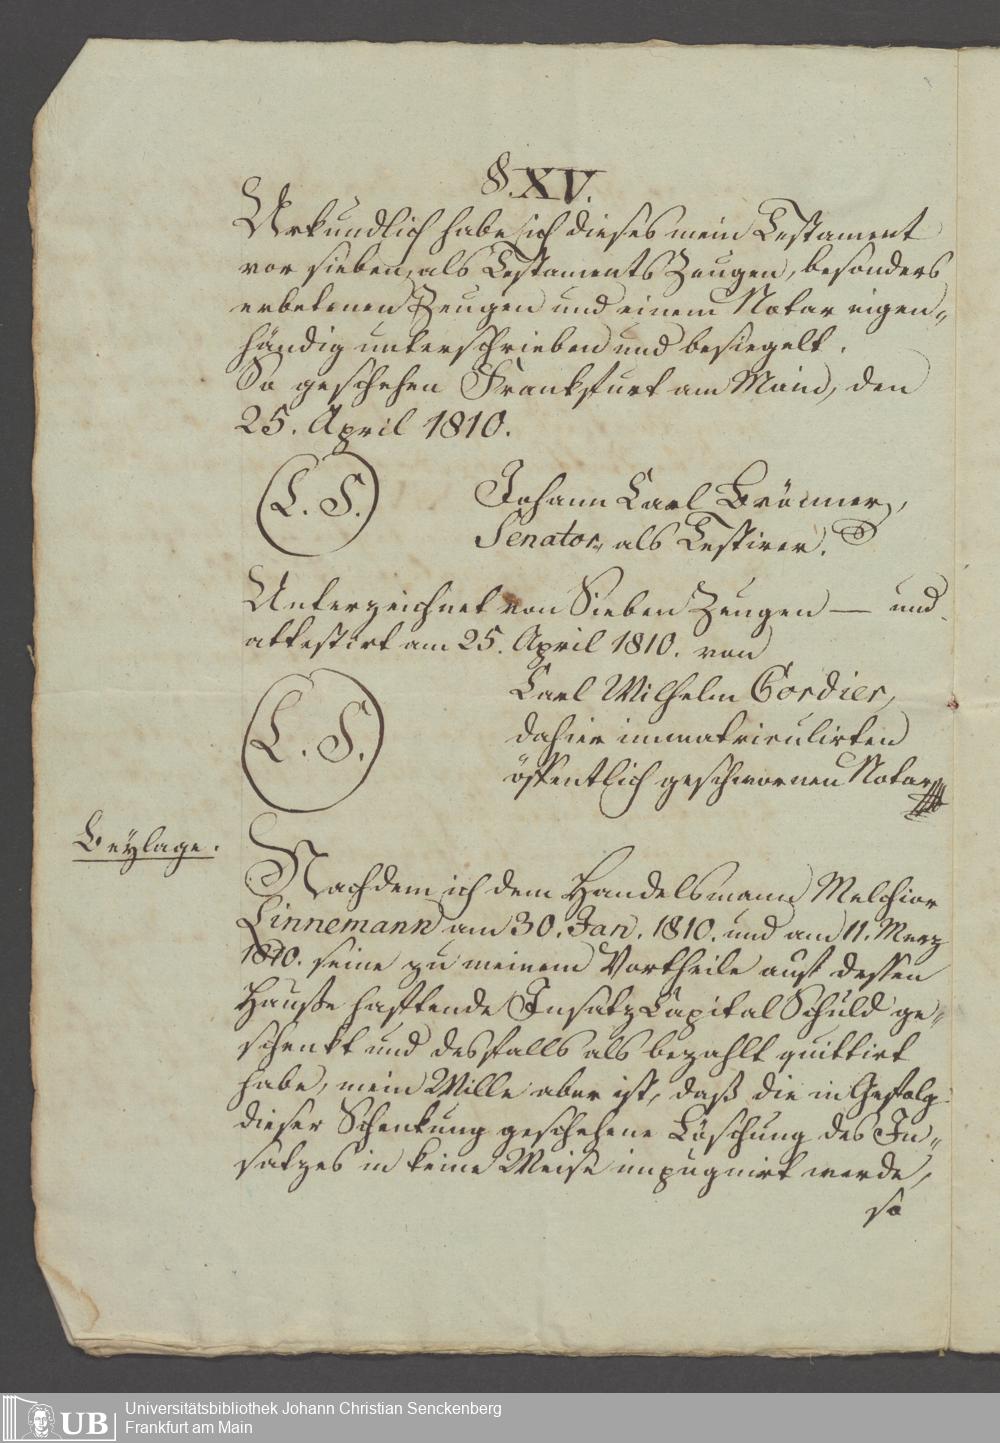 §. XV.
Urkundlich habe ich dieses mein Testament
vor sieben, als Testaments Zeugen, besonders
erbetenen Zeugen und einem Notar eigen„
händig unterschrieben und besiegelt.
So geschehen Frankfurt am Main, den
25. April 1810.
L. S.
Johann Carl Brönner,
Senator, als Testirer.
Unterzeichnet von Sieben Zeugen — und
attestirt am 25. April 1810. von
L. S.
Carl Wilhelm Cordier,
dahier immatriculirten
öffentlich geschwornen Notar
Beylage.
Nachdem ich dem Handelsmann Melchior
Linnemann am 30. Jan. 1810. und am 11. Merz
1810. seine zu meinem Vortheile auf dessen
Hauße haftende Insatz Capital Schuld ge„
schenkt und desfalls als bezahlt quittirt
habe, mein Wille aber ist, daß die in Gefolg
dieser Schenkung geschehene Löschung des In„
satzes in keine Weise impugnirt werde,
so
UB
Universitätsbibliothek Johann Christian Senckenberg
Frankfurt am Main